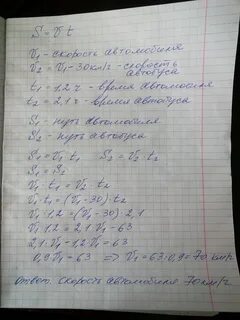 S = Vt
V₁ - скорость автомобиля
V₂ = V₁ - 30км/ч - скорость
автобуса
t₁ = 1,2 ч - время автомобиля
t₂ = 2,1 ч - время автобуса
S₁ - путь автомобиля
S₂ - путь автобуса
S₁ = V₁ t₁ S₂ = V₂ · t₂
S₁ = S₂
V₁ · t₁ = V₂ · t₂
V₁ · t₁ = (V₁ - 30) · t₂
V₁ · 1,2 = (V₁ - 30) · 2,1
V₁ 1,2 = 2,1 V₁ - 63
2,1 · V₁ - 1,2 V₁ = 63
0,9 V₁ = 63 => V₁ = 63 : 0,9 = 70 км/ч
Ответ. скорость автомобиля 70 км/ч